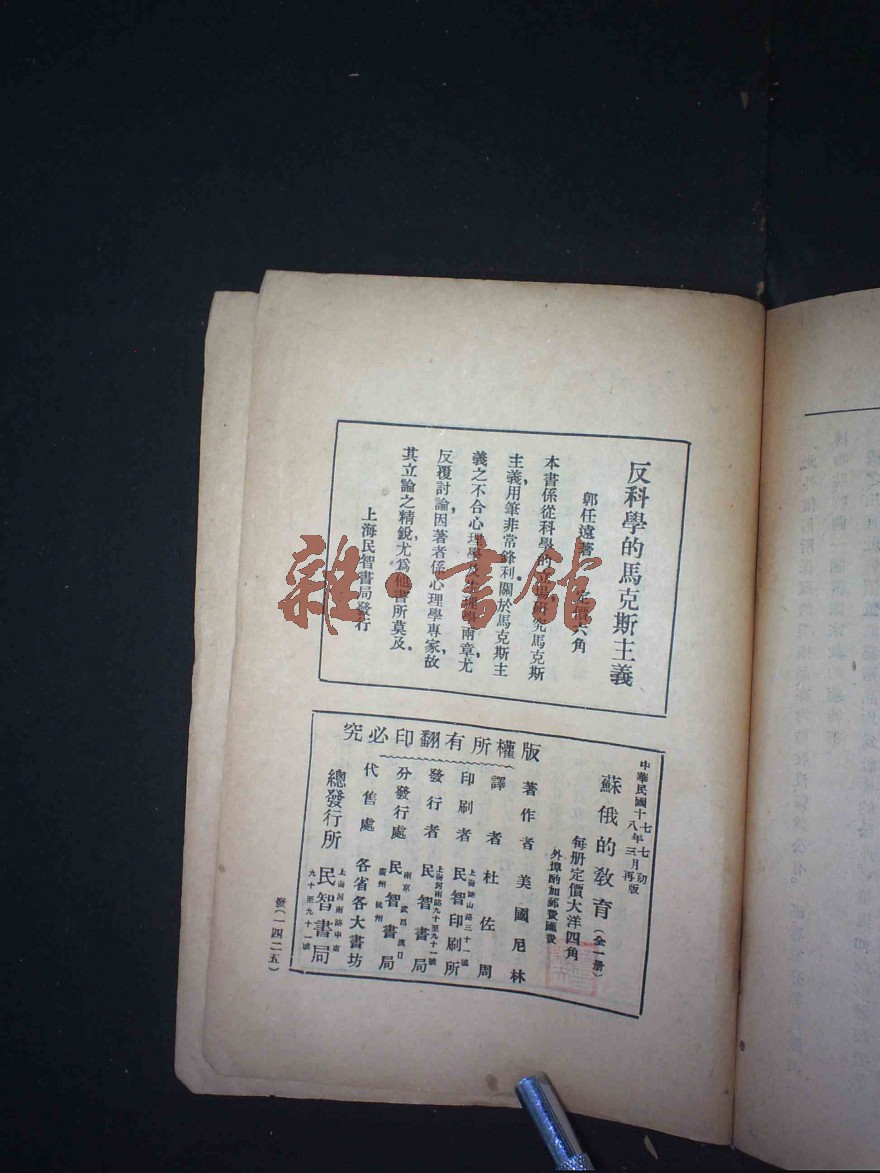 反科學的馬克斯主義
郭任遠著 定價六角
本書係從科學的立場研究馬克斯
主義，用筆非常鋒利關於馬克斯主
義之不合心理學及生理學兩章，尤
反覆討論因著者係心理學專家，故
其立論之精銳尤爲他書所莫及。
上海民智書局發行
雜·書館
版權所有翻印必究
中華民國十七年七月初版
十八年三月再版
蘇俄的教育（全一册）
每册定價大洋四角
外埠酌加郵費匯費
著作者 美國尼林
譯者 杜佐周
印刷者 民智印刷所
發行者 上海河南路九十至九十一號 民智書局
分發行處 南京 武昌 漢口 廣州 杭州 民智書局
代售處 各省各大書坊
總發行所 上海河南路中市 九十至九十一號 民智書局
發（一四二五）